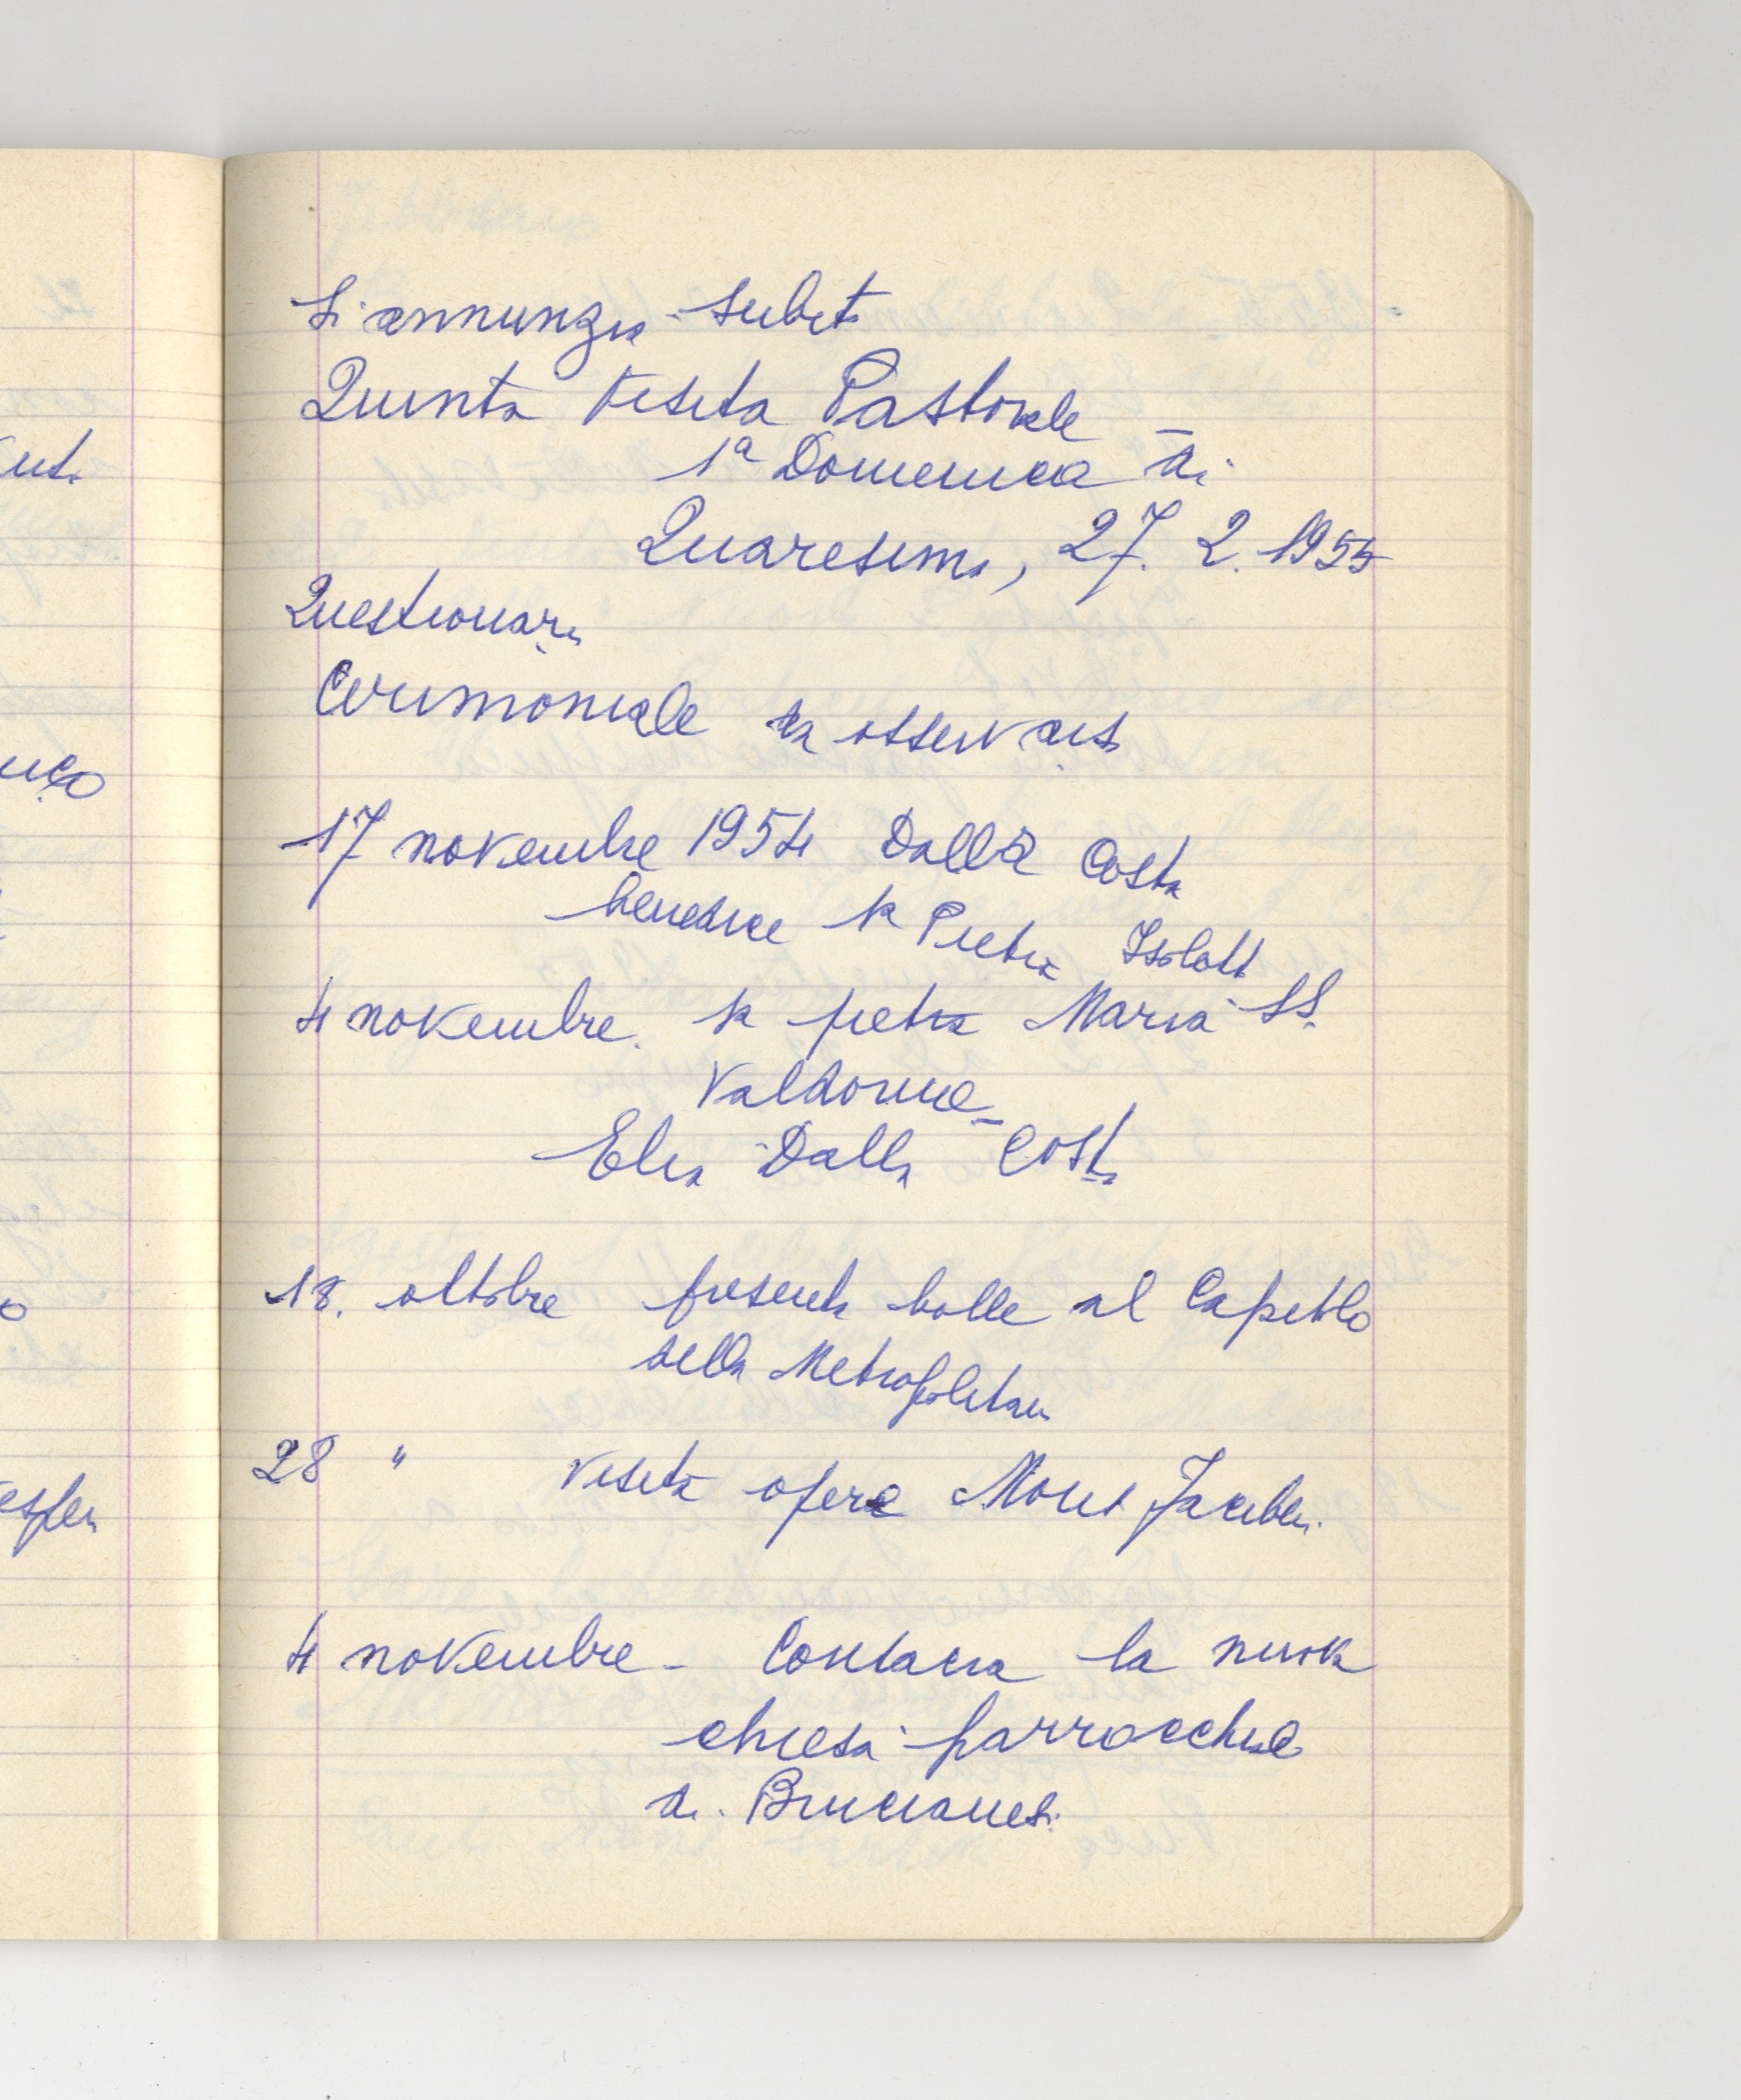 Si annunzia subito
Quinta Visita Pastorale
1ª Domenica di
Quaresima, 27. 2. 1955
Questionari
Cerimoniale da osservarsi
17 novembre 1954 Dalla Costa
benedice la Pietra Isolotto
4 novembre. la pietra Maria SS.
Valdarno
Elia Dalla Costa
18. ottobre presenta bolle al Capitolo
della Metropolitana
28 " visita opera Mons
4 novembre - la nuova
chiesa parrocchiale
di Brucianesi